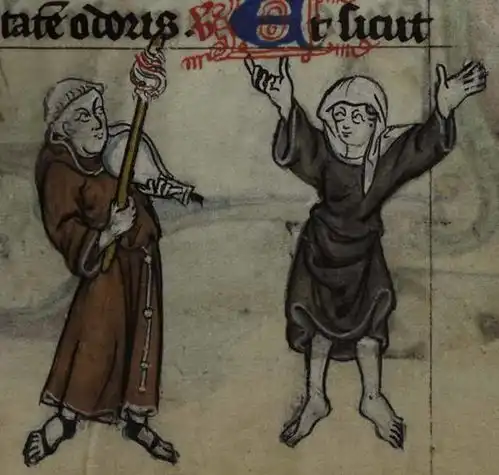 tatē odoris. ℣ Et sicut